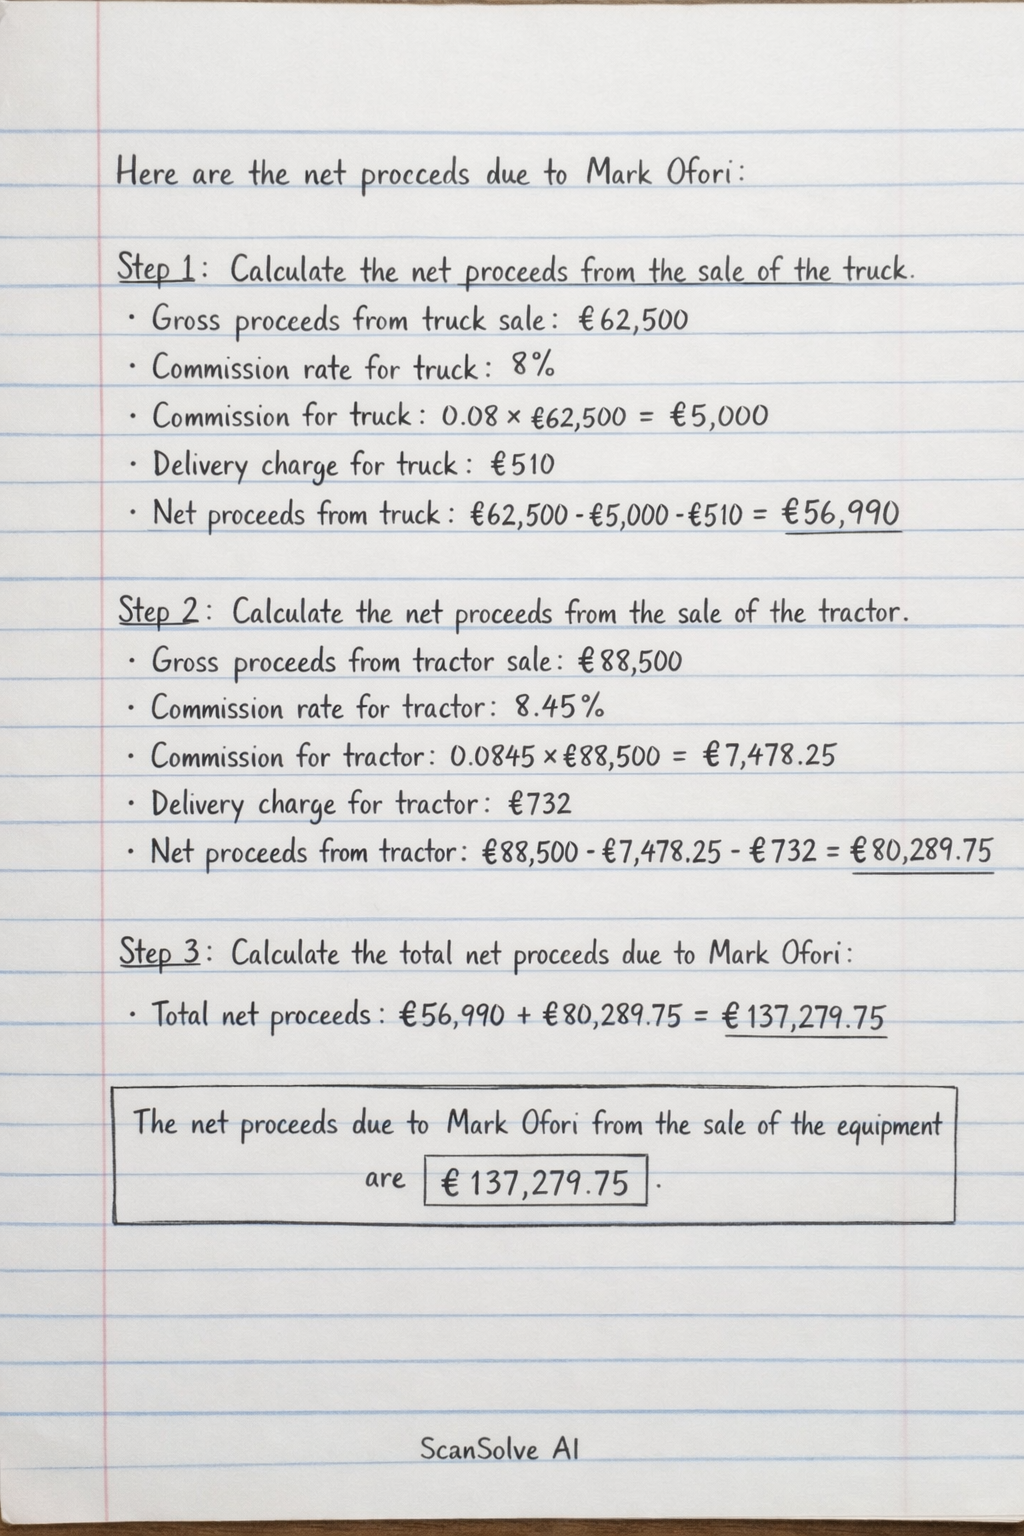 Here are the net procceds due to Mark Ofori:
Step 1: Calculate the net proceeds from the sale of the truck.
· Gross proceeds from truck sale: €62,500
· Commission rate for truck: 8%
· Commission for truck: 0.08 × €62,500 = €5,000
· Delivery charge for truck: €510
· Net proceeds from truck: €62,500 - €5,000 - €510 = €56,990
Step 2: Calculate the net proceeds from the sale of the tractor.
· Gross proceeds from tractor sale: €88,500
· Commission rate for tractor: 8.45%
· Commission for tractor: 0.0845 × €88,500 = €7,478.25
· Delivery charge for tractor: €732
· Net proceeds from tractor: €88,500 - €7,478.25 - €732 = €80,289.75
Step 3: Calculate the total net proceeds due to Mark Ofori:
· Total net proceeds: €56,990 + €80,289.75 = €137,279.75
The net proceeds due to Mark Ofori from the sale of the equipment
are € 137,279.75.
ScanSolve AI